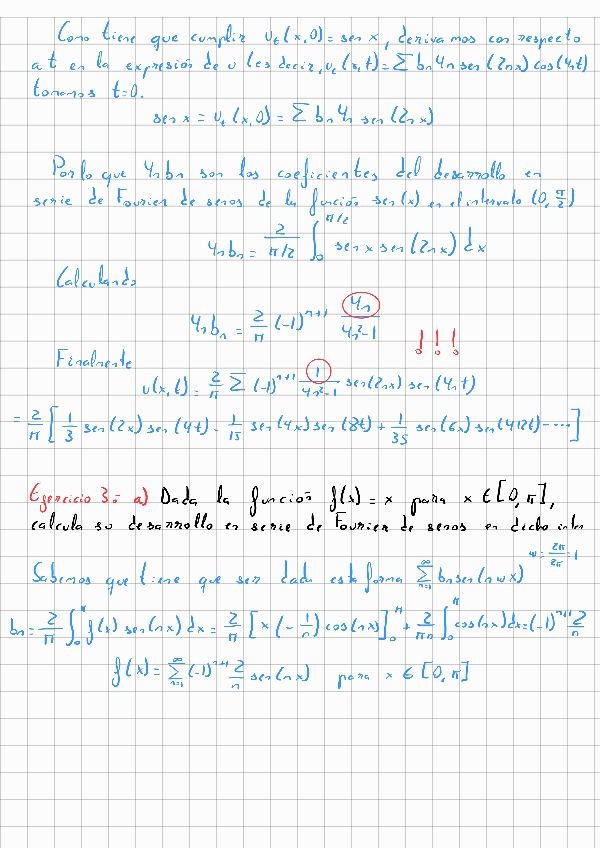 Como tiene que cumplir u_t(x,0) = sen x, derivamos con respecto
a t en la expresión de u (es decir, u_t(x,t) = ∑ bn 4n sen(2nx) cos(4nt)
tomamos t=0.
sen x = u_t(x,0) = ∑ bn 4n sen(2nx)
Por lo que 4n bn son los coeficientes del desarrollo en
serie de Fourier de senos de la función sen(x) en el intervalo (0, π/2)
4n bn = 2/(π/2) ∫_0^{π/2} sen x sen(2nx) dx
Calculando
4n bn = 2/π (-1)^{n+1} 4n/(4n²-1)
! ! !
Finalmente
u(x,t) = 2/π ∑ (-1)^{n+1} 1/(4n²-1) sen(2nx) sen(4nt)
= 2/π [ 1/3 sen(2x) sen(4t) - 1/15 sen(4x) sen(8t) + 1/35 sen(6x) sen(412t) - ···· ]
Ejercicio 3: a) Dada la función f(x) = x para x ∈ [0, π],
calcula su desarrollo en serie de Fourier de senos en dicho inter
Sabemos que tiene que ser dada esta forma ∑_{n=1}^∞ bn sen(nωx) ω = 2π/2π = 1
bn = 2/π ∫_0^π f(x) sen(nx) dx = 2/π [ x (-1/n) cos(nx) ]_0^π + 2/πn ∫_0^π cos(nx) dx = (-1)^{n+1} 2/n
f(x) = ∑_{n=1}^∞ (-1)^{n+1} 2/n sen(nx) para x ∈ [0, π]